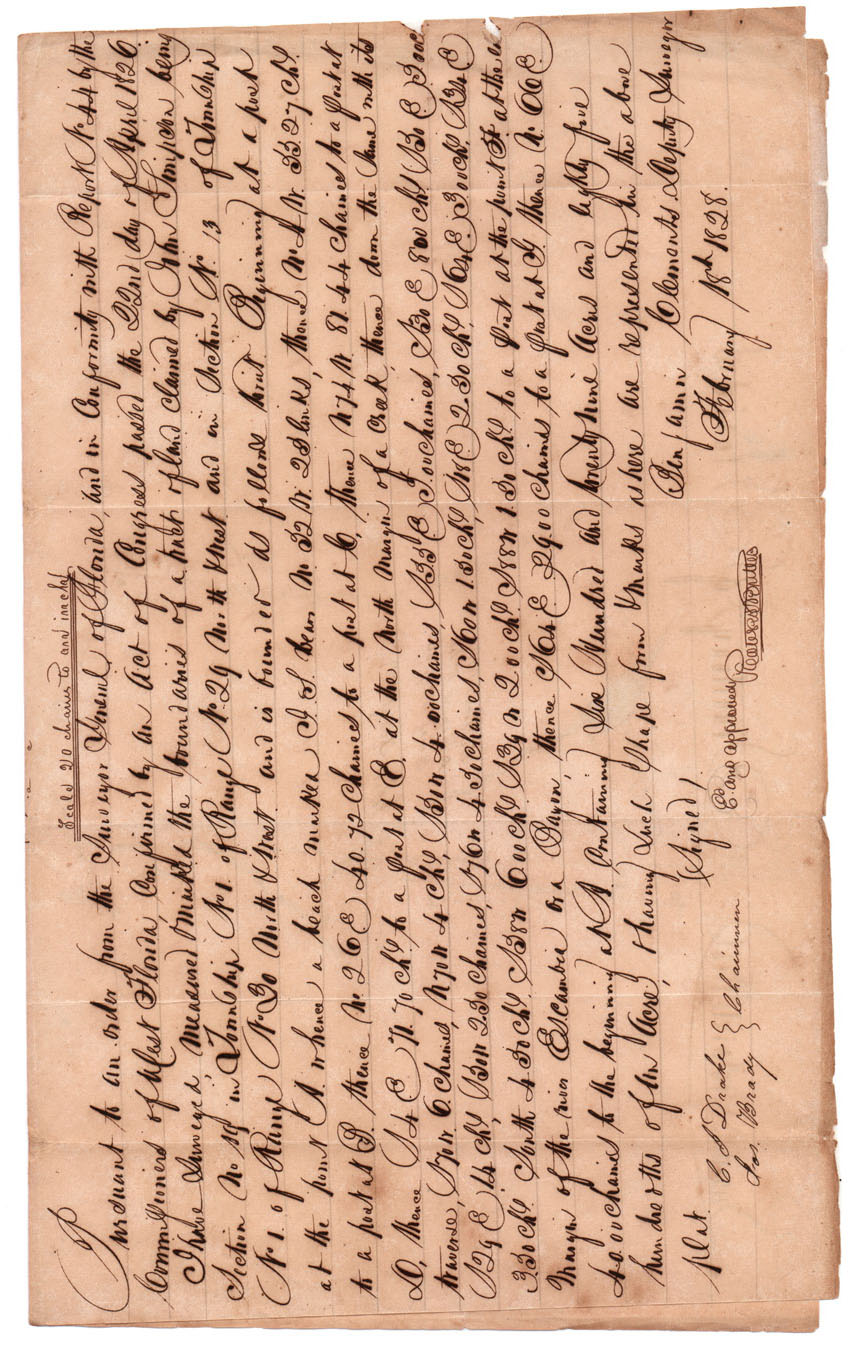 Scale 20 chains to and inch
Pursuant to an order from the Surveyor General of Florida, and in Conformity with Report No 44 by the
Commissioners of West Florida, Confirmed by an Act of Congress passed the 22nd day of April 1826
I have Surveyed, Measured & Marked the boundaries of a tract of land claimed by John Simpson being
Section No in Township No 1 of Range No 29 North & West and in Section No 13 of Township
No 1 of Range No 30 North & West and is bounded as follows to wit Beginning at a post
at the point A whence a beach marked I S bears N 32 W. 25 links, thence N 4 W. 33.27 Chs
to a post at B thence N 26 E 40.72 Chaines to a post at C, thence N 74 W. 81.44 Chaines to a post at
D, thence S 4 E 11.70 Chs to a post at E. at the North Margin of a Creek, thence down the Same with its
traverse, S 70 W 6 Chaines, N 70 W 4 Chs, S 31 W 4.00 Chaines, S 33 E 5.00 chaines, S 30 E 8.00 Chs S 30 E 3.00 c
S 29 E 14 Chs S 30 W 2.50 Chaines, S 76 W 4.50 Chaines, N 60 W 1.50 Chs, N 8 E 2.50 Chs, N 64 E 3.00 Chs, S 34 E
3.50 Chs South 4.50 Chs S 38 W 6.00 Chs S 39 W 2.00 Chs S 88 W 1.50 Chs to a post at the point F at the
Margin of the river Escambia or a Bayou, thence N 64 E 29.00 Chaines to a post at G thence N. 66 E.
40.00 Chaines to the beginning at A Containing Six Hundred and twenty nine Acres and Eighty five
hundredths of An Acre, & having Such Shape form & marks as here are represented in the above
plat. (Signed, Benjamin Clements Deputy Surveyor
C. S Drake } Chainmen Ex. and approved February 18th 1828.
Jos. Brady